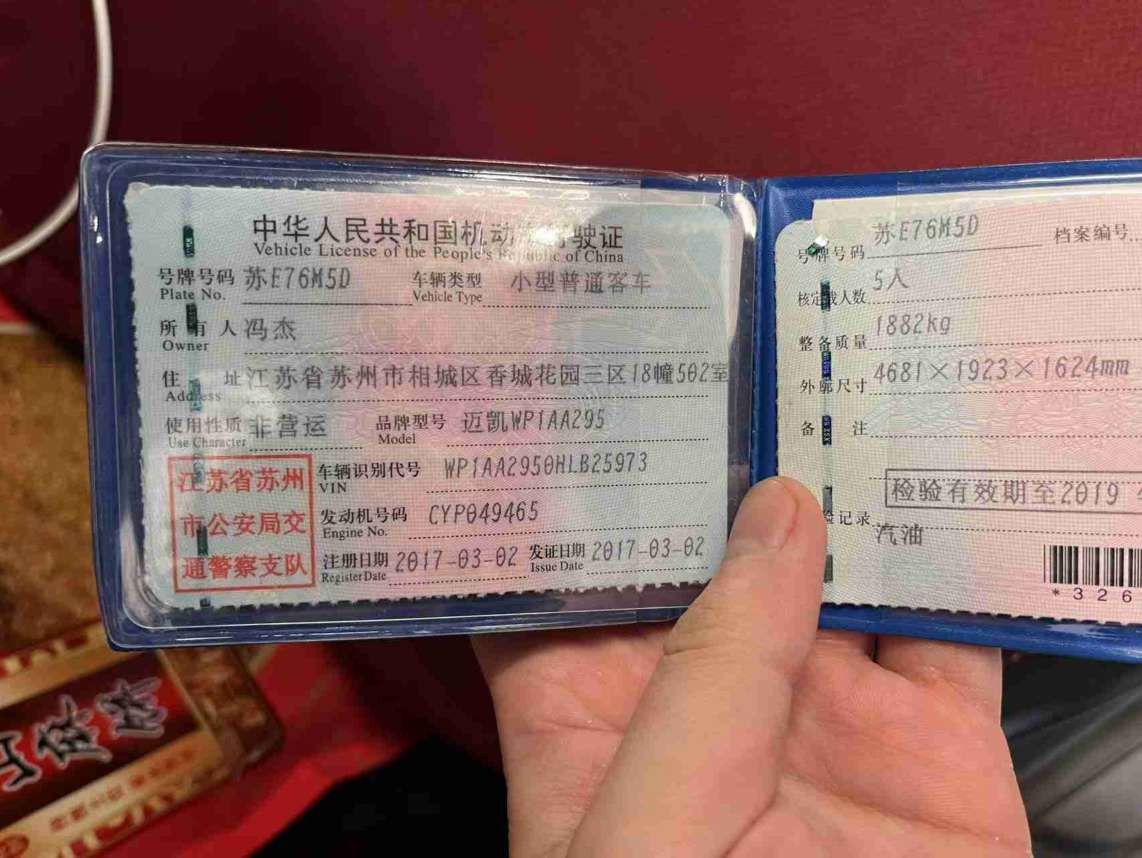 中华人民共和国机动 驶证
Vehicle License of the People's Republic of China
号牌号码 苏E76M5D 车辆类型 小型普通客车
Plate No. Vehicle Type
所有人 冯杰
Owner
住址 江苏省苏州市相城区香城花园三区18幢502室
Address
使用性质 非营运 品牌型号 迈凯WP1AA295
Use Character Model
江苏省苏州
市公安局交
通警察支队
车辆识别代号 WP1AA2950HLB25973
VIN
发动机号码 CYP049465
Engine No.
注册日期 2017-03-02 发证日期 2017-03-02
Register Date Issue Date
号牌号码 苏E76M5D 档案编号
核定载人数 5人
整备质量 1882kg
外廓尺寸 4681×1923×1624mm
备注
检验有效期至2019
验记录
汽油
*326